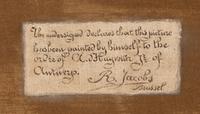 The undersigned declares that this picture
has been painted by himself to the
order of N. Huybrechts Jr of
Antwerp.
Js. Jacobs
Brussel